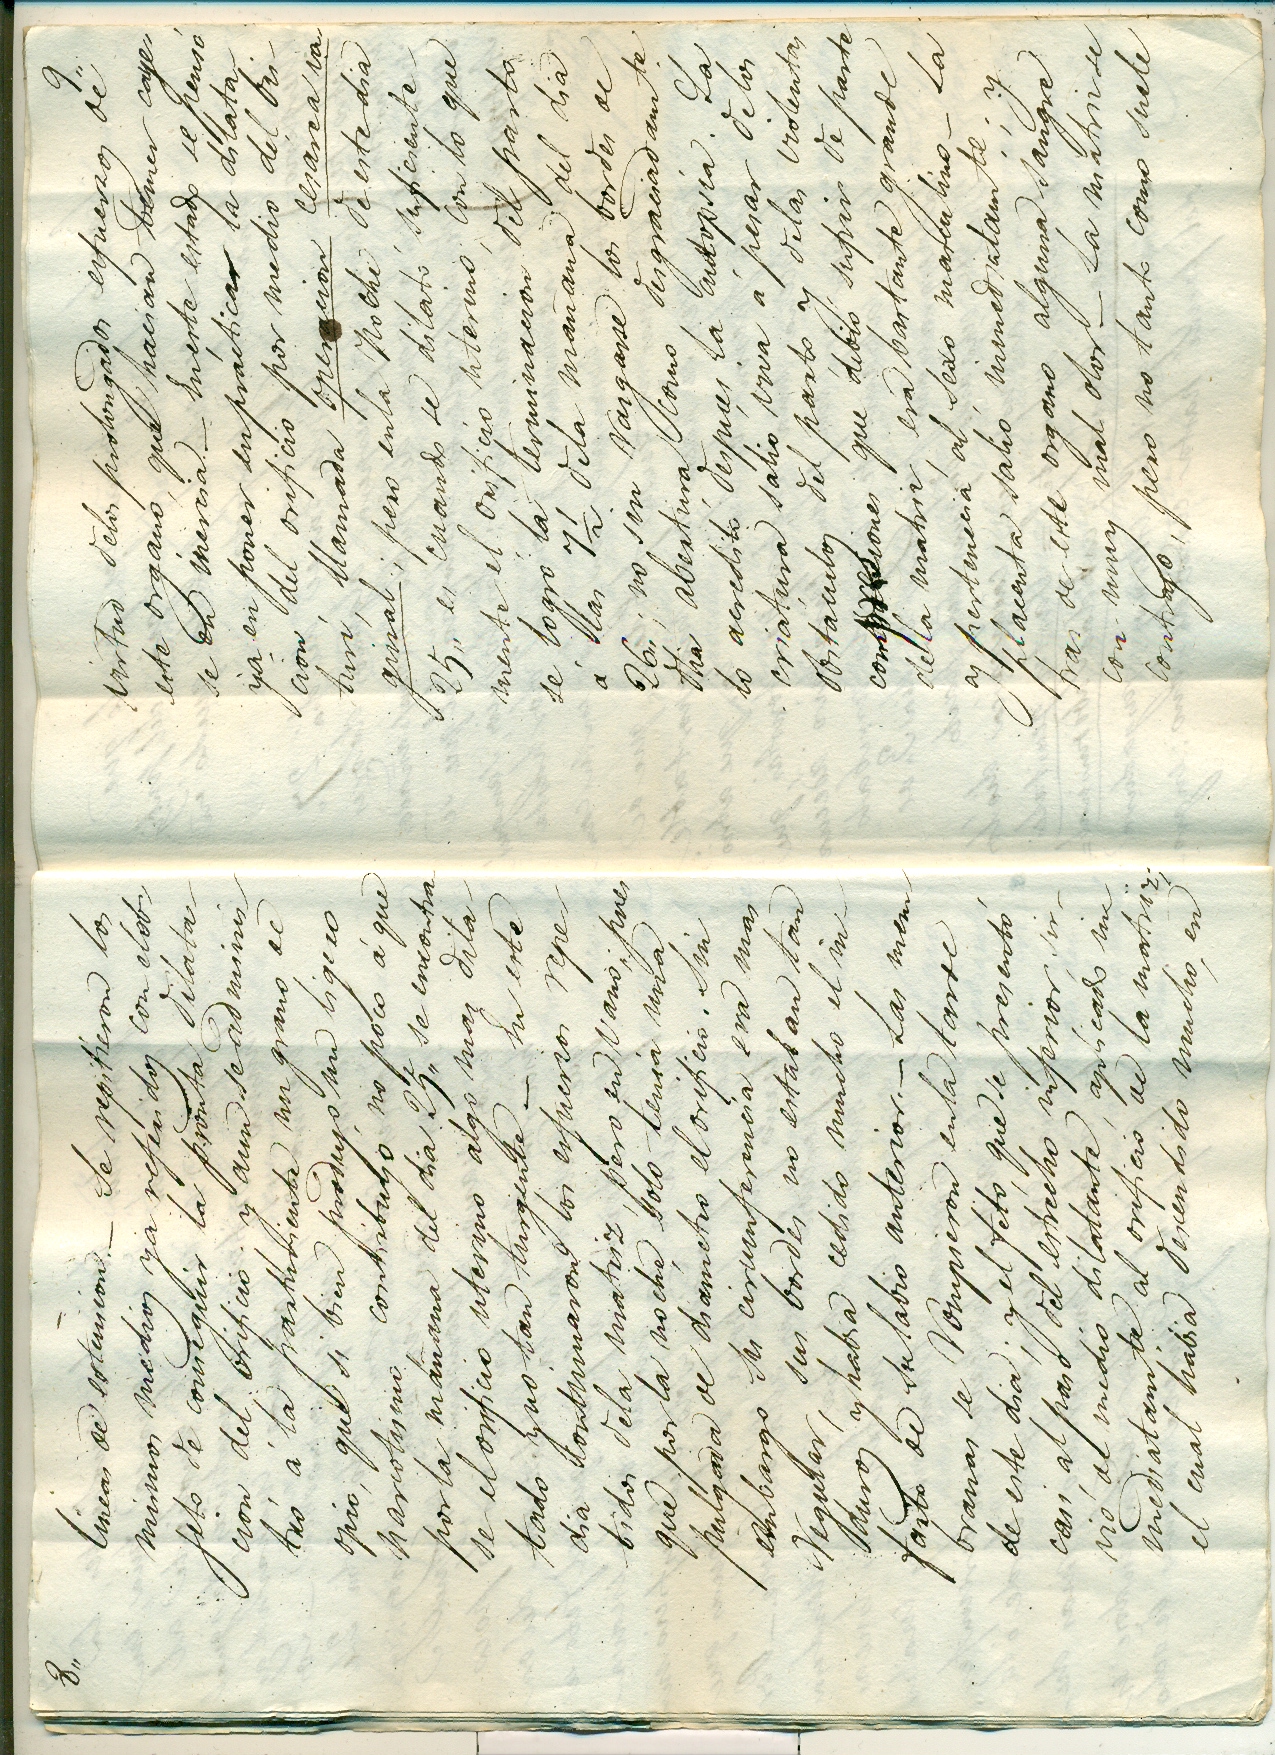 8,,
lineas de estension.— Se repitieron los
mismos medios ya referidos con el ob-
jeto de conseguir la pronta dilata-
cion del orificio y aun se adminis-
tró á la parturienta un grano de
opió, que si bien produjo un ligero
narcotismo contribuyó no póco á que
por la mañana del dia 25,, se encontra-
se el orificio uterino algo mas dila-
tado y no tan turgente — En este
dia continuaron los esfuerzos repe-
tidos de la matriz, pero en vano, pues
que por la noche solo tenia una
pulgada de diametro el orificio. Sin
embargo su circunferencia era mas
regular, sus bordes no estaban tan
duros y habia cedido mucho el in-
farto de su labio anterior.— Las mem-
branas se rompieron en la tarde
de este dia y el feto que se presentó
casi al paso del estrecho inferior sir-
vió de medio dilatante aplicado in-
mediatamte. al orificio de la matriz,
el cual habia descendido mucho, en
9,,
virtud de los prolongados esfuerzos de
este organo que hacian temer caye-
se en inercia.— En este estado se pensó
ya en poner en practica la dilata-
cion del orificio por medio del bis-
turi llamada operacion cesarea va-
ginal; pero en la noche de este dia
25,, es cuando se dilató suficiente-
mente el orificio uterino, con lo que
se logró la terminacion del parto
a las 7 1/2 de la mañana del dia
26; no sin rasgarse los bordes de
dha. abertura como desgraciadamte.
lo acreditó despues la autopsia. La
criatura salió viva á pesar de los
obstáculos del parto y de las violentas
compresiones que debió sufrir de parte
de la matriz, era bastante grande
y pertenecia al sexo masculino — La
placenta salió inmediatamte. y
tras de este organo alguna sangre
con muy mal olor — La matriz se
contrajo, pero no tanto como suele